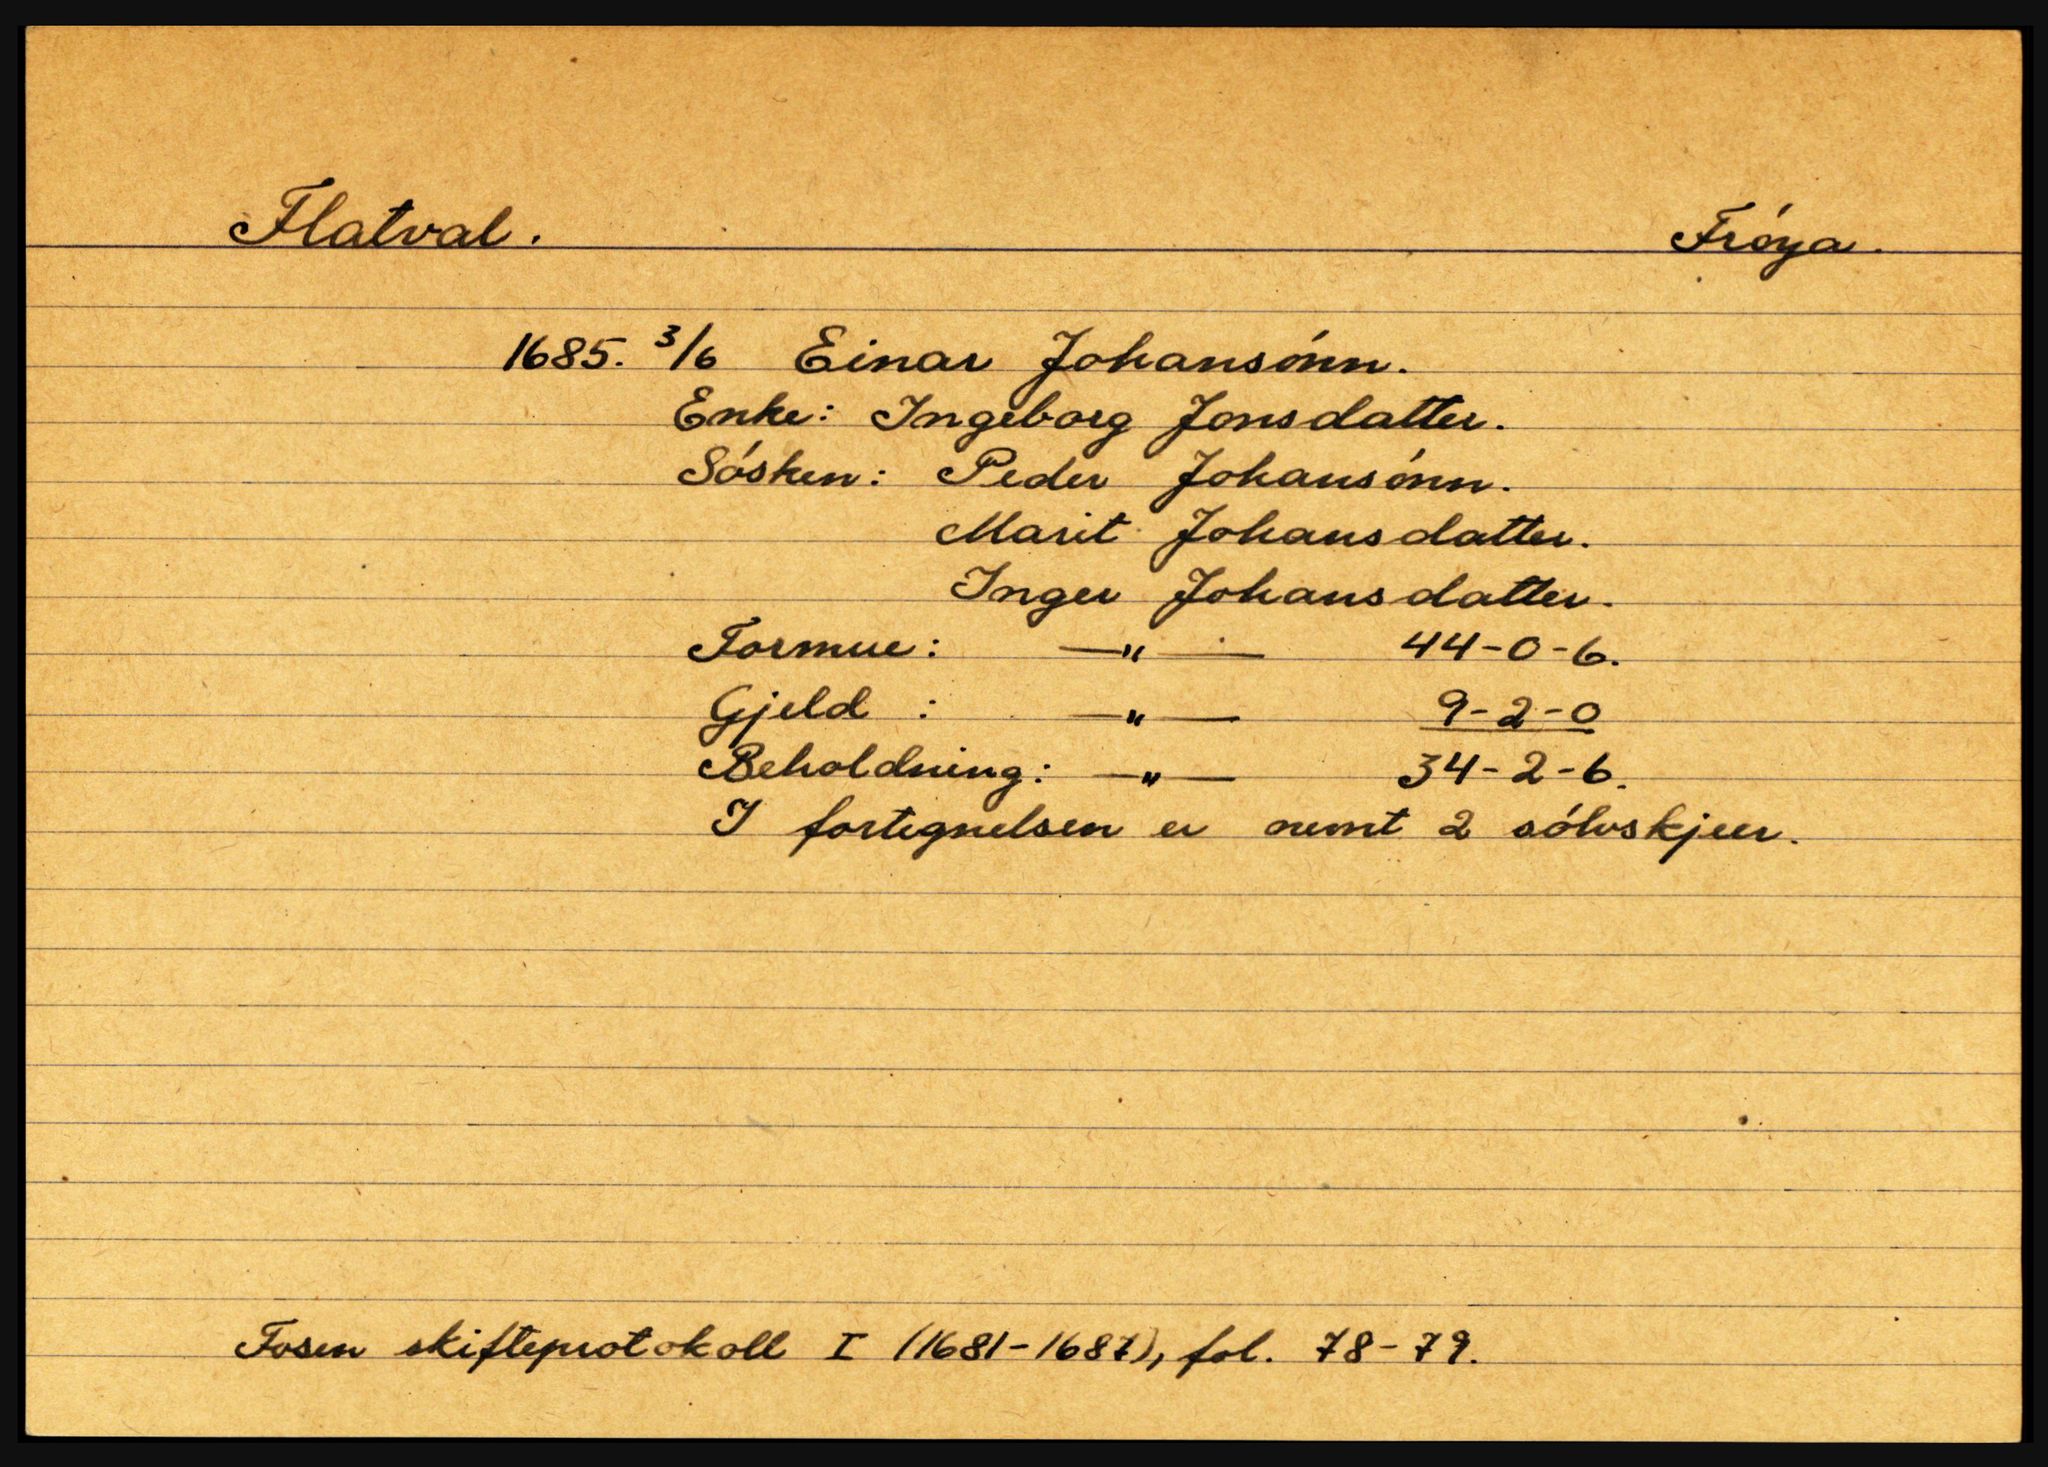 Flatval. Fróya.
1685. 3/6 Einar Johansónn.
Enke: Ingeborg Jonsdatter.
Sósken: Peder Johansónn.
Marit Johansdatter.
Inger Johansdatter.
Formue: —"— 44-0-6.
Gjeld : —"— 9-2-0
Beholdning: —"— 34-2-6.
I fortegnelsen er nemt 2 sólvskjeer.
Fosen skifteprotokoll I (1681-1687), fol. 78-79.